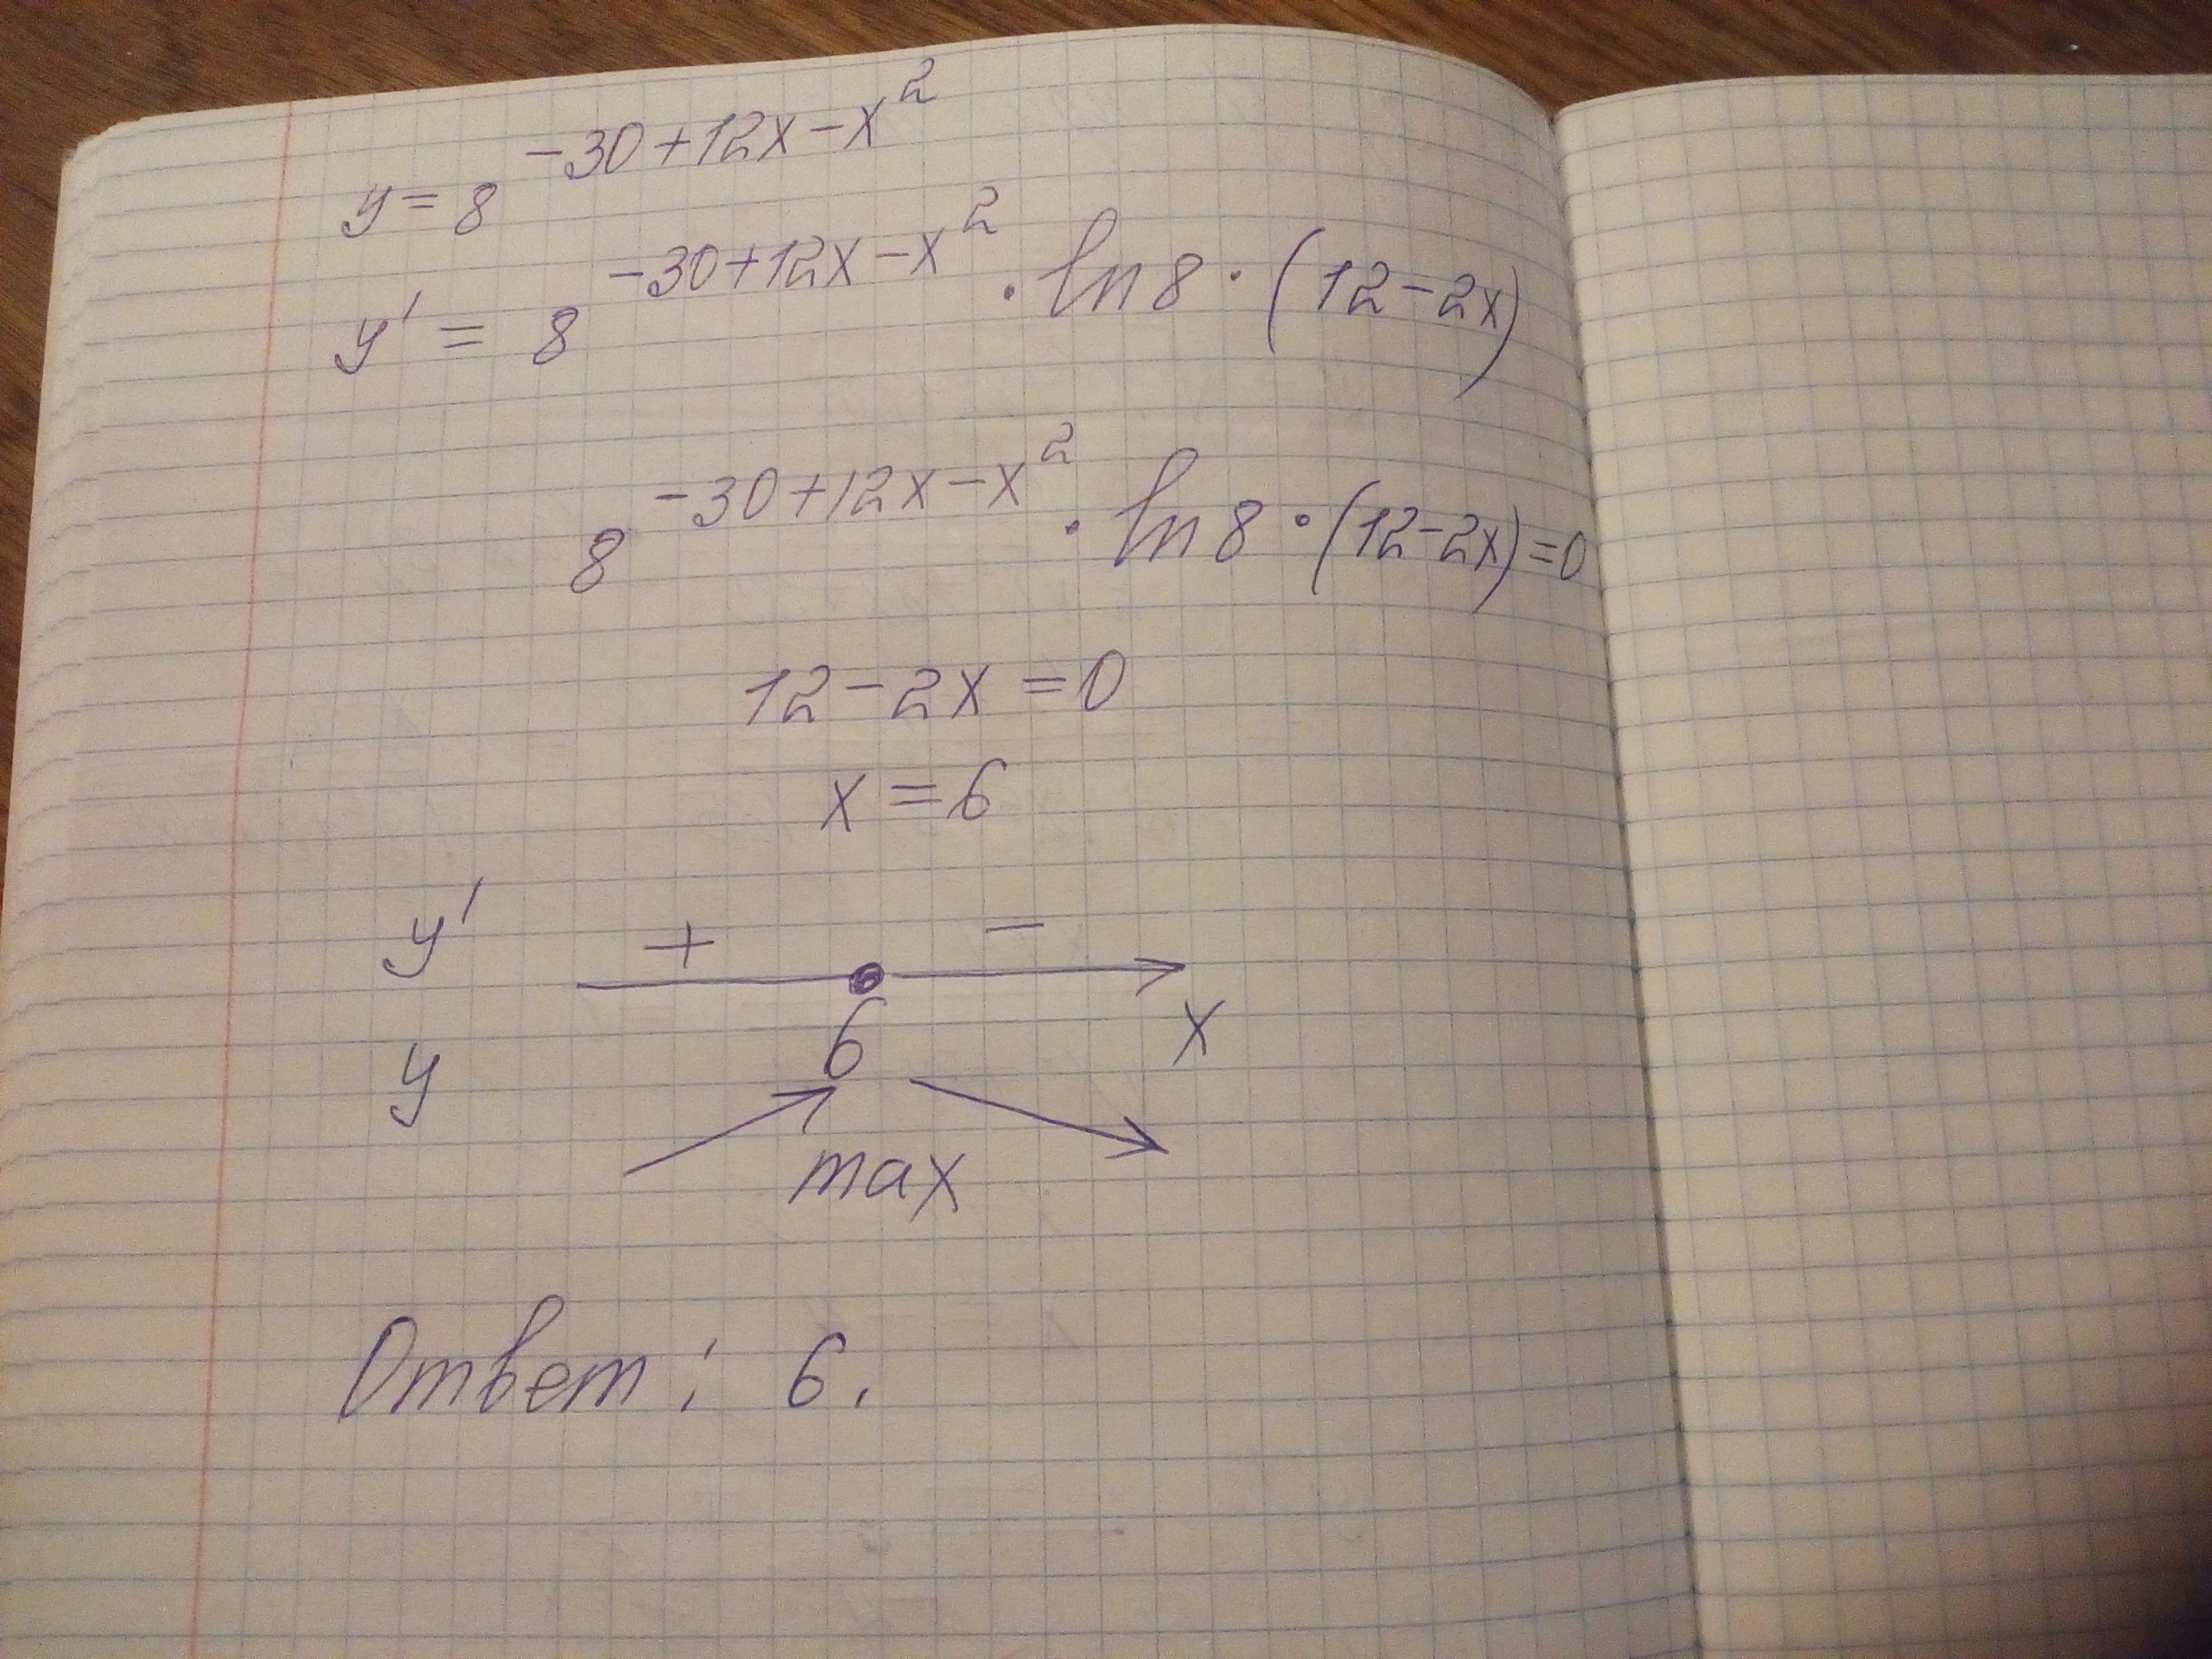 y = 8^{-30+12x-x^2}
y' = 8^{-30+12x-x^2} · ln 8 · (12-2x)
8^{-30+12x-x^2} · ln 8 · (12-2x)=0
12-2x=0
x=6
y' + -
6 x
y
max
Ответ: 6.